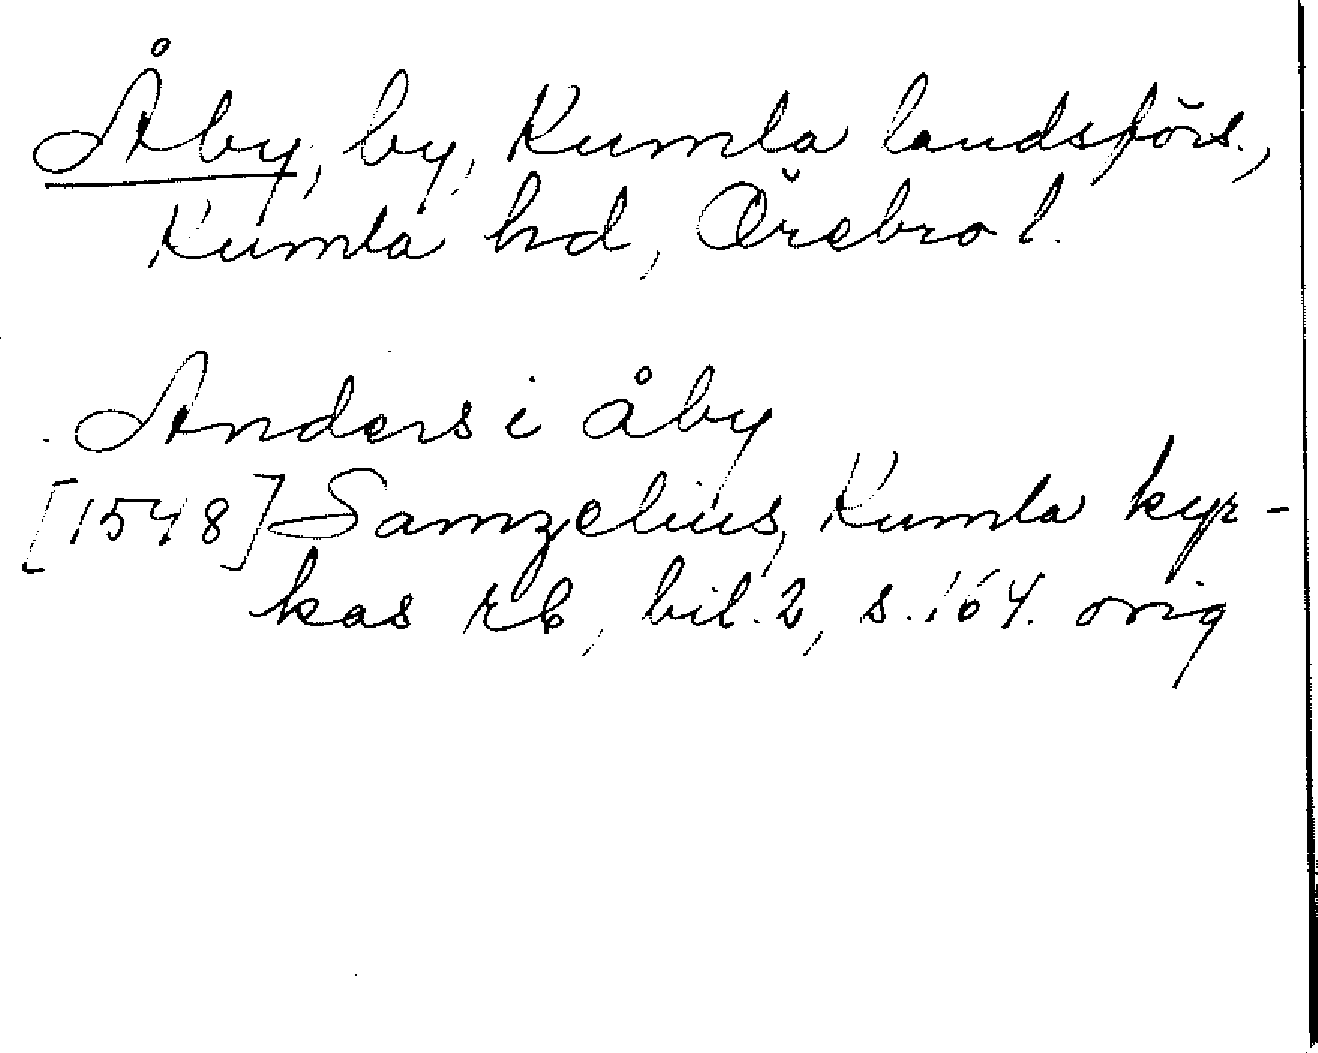 Åby, by, Kumla landsförs.,
Kumla hd, Örebro l.
Anders i åby
[1548] Samzelius, Kumla kyr-
kas rb, bil. 2, s. 164. orig